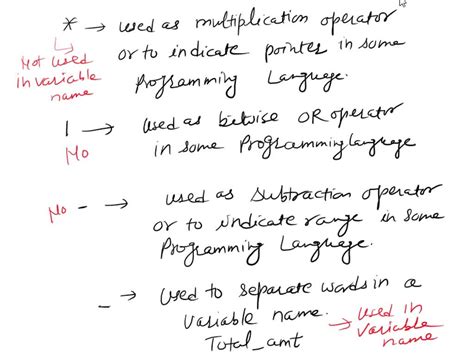 * → used as multiplication operator
or to indicate pointer in some
Programming Language.
Not used
in variable
name
| → used as bitwise OR operator
in some Programming language
No
No - → used as subtraction operator
or to indicate range in some
Programming Language.
_ → used to separate words in a
variable name.
Total_amt → used in
variable
name